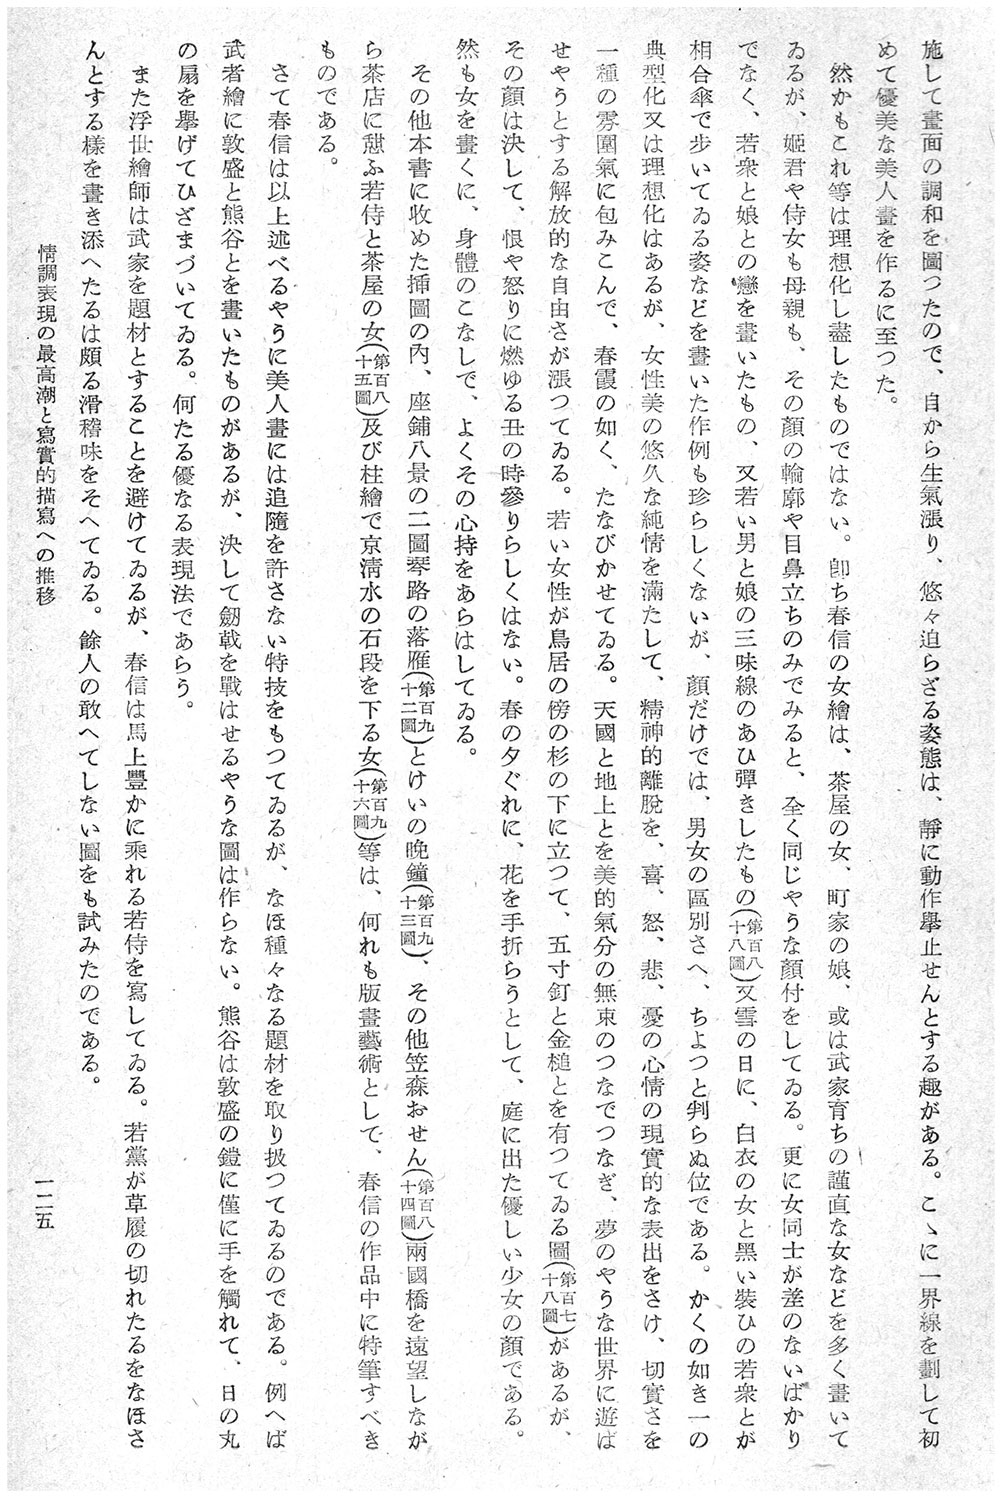 施して畫面の調和を圖つたので、自から生氣漲り、悠々迫らざる姿態は、靜に動作擧止せんとする趣がある。こゝに一界線を劃して初
めて優美な美人畫を作るに至つた。
然かもこれ等は理想化し盡したものではない。卽ち春信の女繪は、茶屋の女、町家の娘、或は武家育ちの謹直な女などを多く畫いて
ゐるが、姬君や侍女も母親も、その顏の輪廓や目鼻立ちのみでみると、全く同じやうな顏付をしてゐる。更に女同士が差のないばかり
でなく、若衆と娘との戀を畫いたもの、又若い男と娘の三味線のあひ彈きしたもの(第百八十八圖)又雪の日に、白衣の女と黑い裝ひの若衆とが
相合傘で步いてゐる姿などを畫いた作例も珍らしくないが、顏だけでは、男女の區別さへ、ちよつと判らぬ位である。かくの如き一の
典型化又は理想化はあるが、女性美の悠久な純情を滿たして、精神的離脫を、喜、怒、悲、憂の心情の現實的な表出をさけ、切實さを
一種の雰圍氣に包みこんで、春霞の如く、たなびかせてゐる。天國と地上とを美的氣分の無束のつなでつなぎ、夢のやうな世界に遊ば
せやうとする解放的な自由さが漲つてゐる。若い女性が鳥居の傍の杉の下に立つて、五寸釘と金槌とを有つてゐる圖(第百七十八圖)があるが、
その顏は決して、恨や怒りに燃ゆる丑の時參りらしくはない。春の夕ぐれに、花を手折らうとして、庭に出た優しい少女の顏である。
然も女を畫くに、身體のこなしで、よくその心持をあらはしてゐる。
その他本書に收めた揷圖の內、座鋪八景の二圖琴路の落雁(第百九十二圖)とけいの晚鐘(第百九十三圖)、その他笠森おせん(第百八十四圖)兩國橋を遠望しなが
ら茶店に憩ふ若侍と茶屋の女(第百八十五圖)及び柱繪で京淸水の石段を下る女(第百九十六圖)等は、何れも版畫藝術として、春信の作品中に特筆すべき
ものである。
さて春信は以上述べるやうに美人畫には追隨を許さない特技をもつてゐるが、なほ種々なる題材を取り扱つてゐるのである。例へば
武者繪に敦盛と熊谷とを畫いたものがあるが、決して劒戟を戰はせるやうな圖は作らない。熊谷は敦盛の鎧に僅に手を觸れて、日の丸
の扇を擧げてひざまづいてゐる。何たる優なる表現法であらう。
また浮世繪師は武家を題材とすることを避けてゐるが、春信は馬上豐かに乘れる若侍を寫してゐる。若黨が草履の切れたるをなほさ
んとする樣を畫き添へたるは頗る滑稽味をそへてゐる。餘人の敢へてしない圖をも試みたのである。
情調表現の最高潮と寫實的描寫への推移
一二五